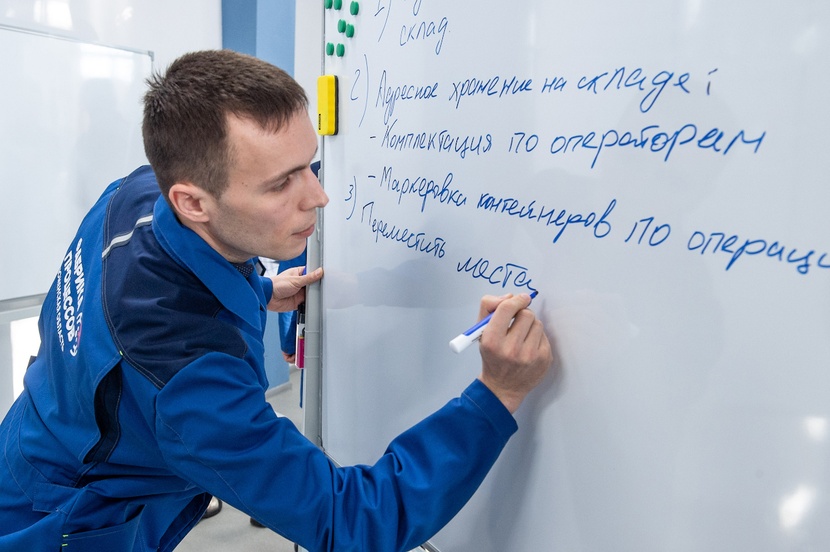 1)
склад.
2) Адресное хранение на складе;
- Комплектация по операторам
- Маркеровка контейнеров по операци
3) Переместить места
ФАБРИКА
ПРОЦЕССОВ
ОБЛАСТЬ